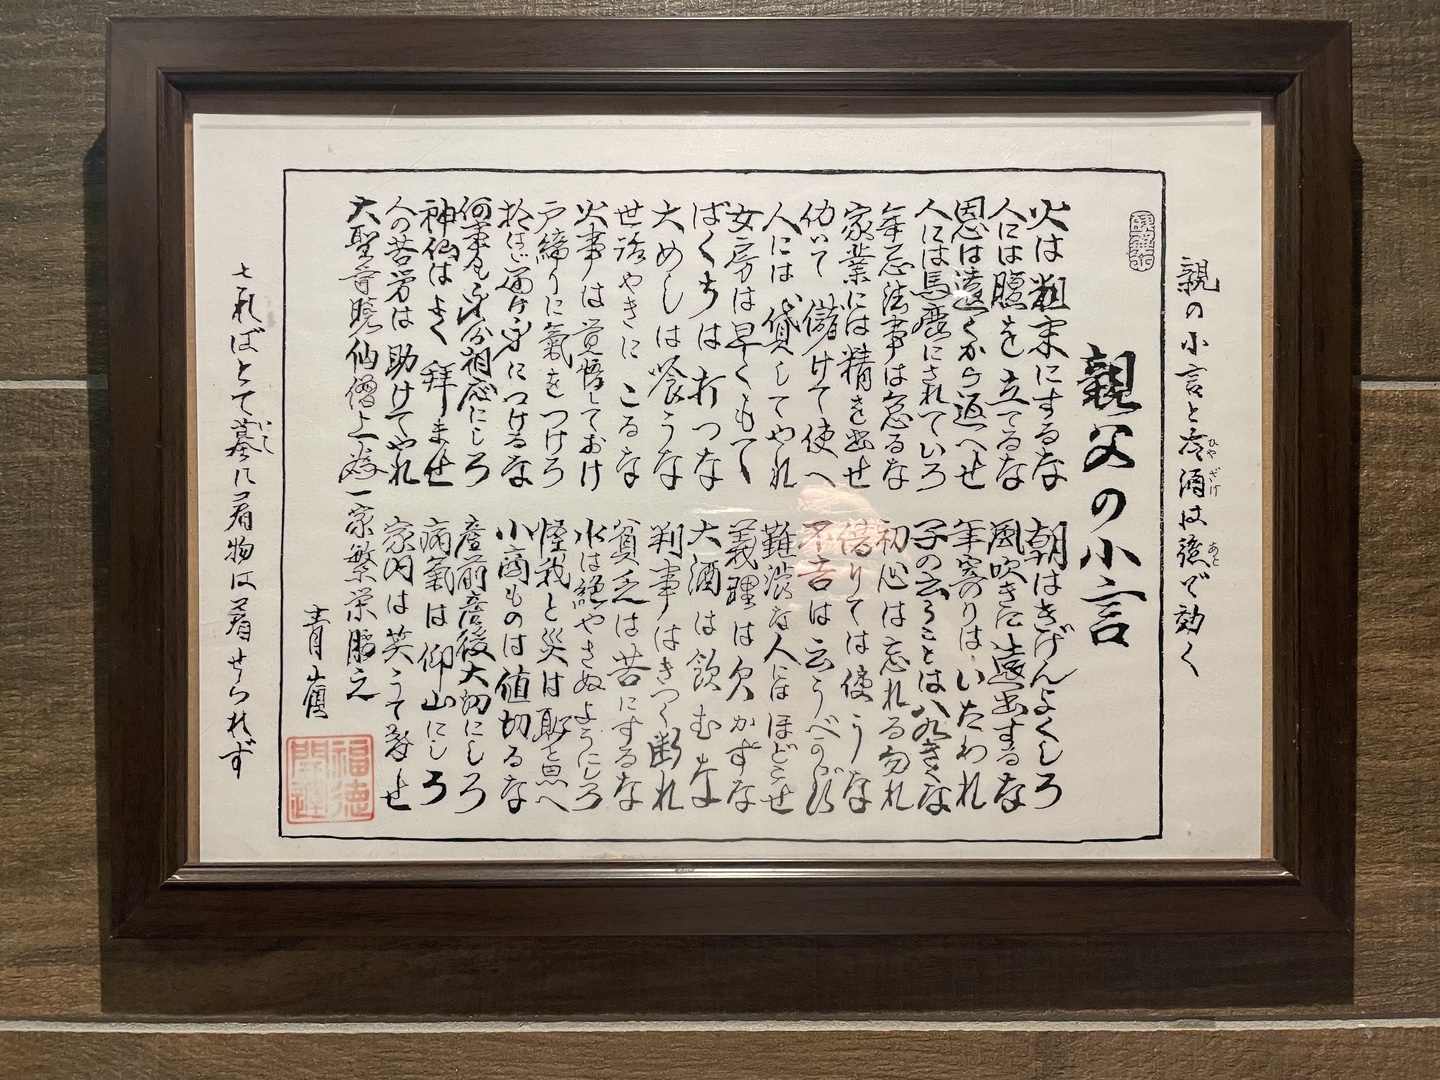 親の小言と冷酒は後で効く
ひやざけ
あと
親父の小言
火は粗末にするな
朝はきげんよくしろ
人には腹を立てるな
風吹きに遠出するな
恩は遠くから返へせ
年寄りはいたわれ
人には馬鹿にされていろ
子の云うことは八九きくな
年忌法事は怠るな
初心は忘れる勿れ
家業には精を出せ
借りては使うな
仂いて儲けて使へ
不吉は云うべからず
人には貸してやれ
難渋な人にはほどこせ
女房は早くもて
義理は欠かすな
ばくちは打つな
大酒は飲むな
大めしは喰うな
判事はきつく断れ
世話やきにこるな
貧乏は苦にするな
火事は覚悟しておけ
水は絶やさぬようにしろ
戸締りに氣をつけろ
怪我と災は恥と思へ
拾はゞ届け身につけるな
小商ものは値切るな
何事も身分相應にしろ
産前産後大切にしろ
神仏はよく拝ませ
病氣は仰山にしろ
人の苦労は助けてやれ
家内は笑うて暮せ
大聖寺暁仙僧上
一家繁栄
福徳開運
さればとて墓に着物は着せられず
いし